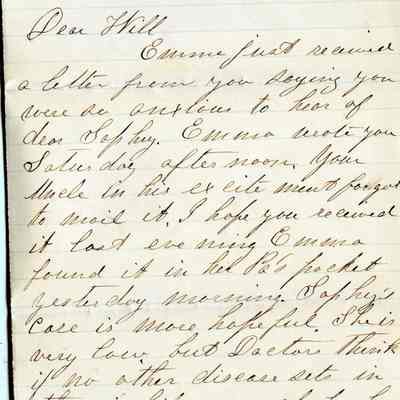 Dear Will
Emma just received
a letter from you saying you
were so anxious to hear of
dear Sophy. Emma wrote you
Saturday afternoon. Your
Uncle in his excitement forgot
to mail it. I hope you received
it last evening Emma
found it in her Pa's pocket
yesterday morning. Sophy's
case is more hopeful. She is
very low, but Doctors think
if no other disease sets in